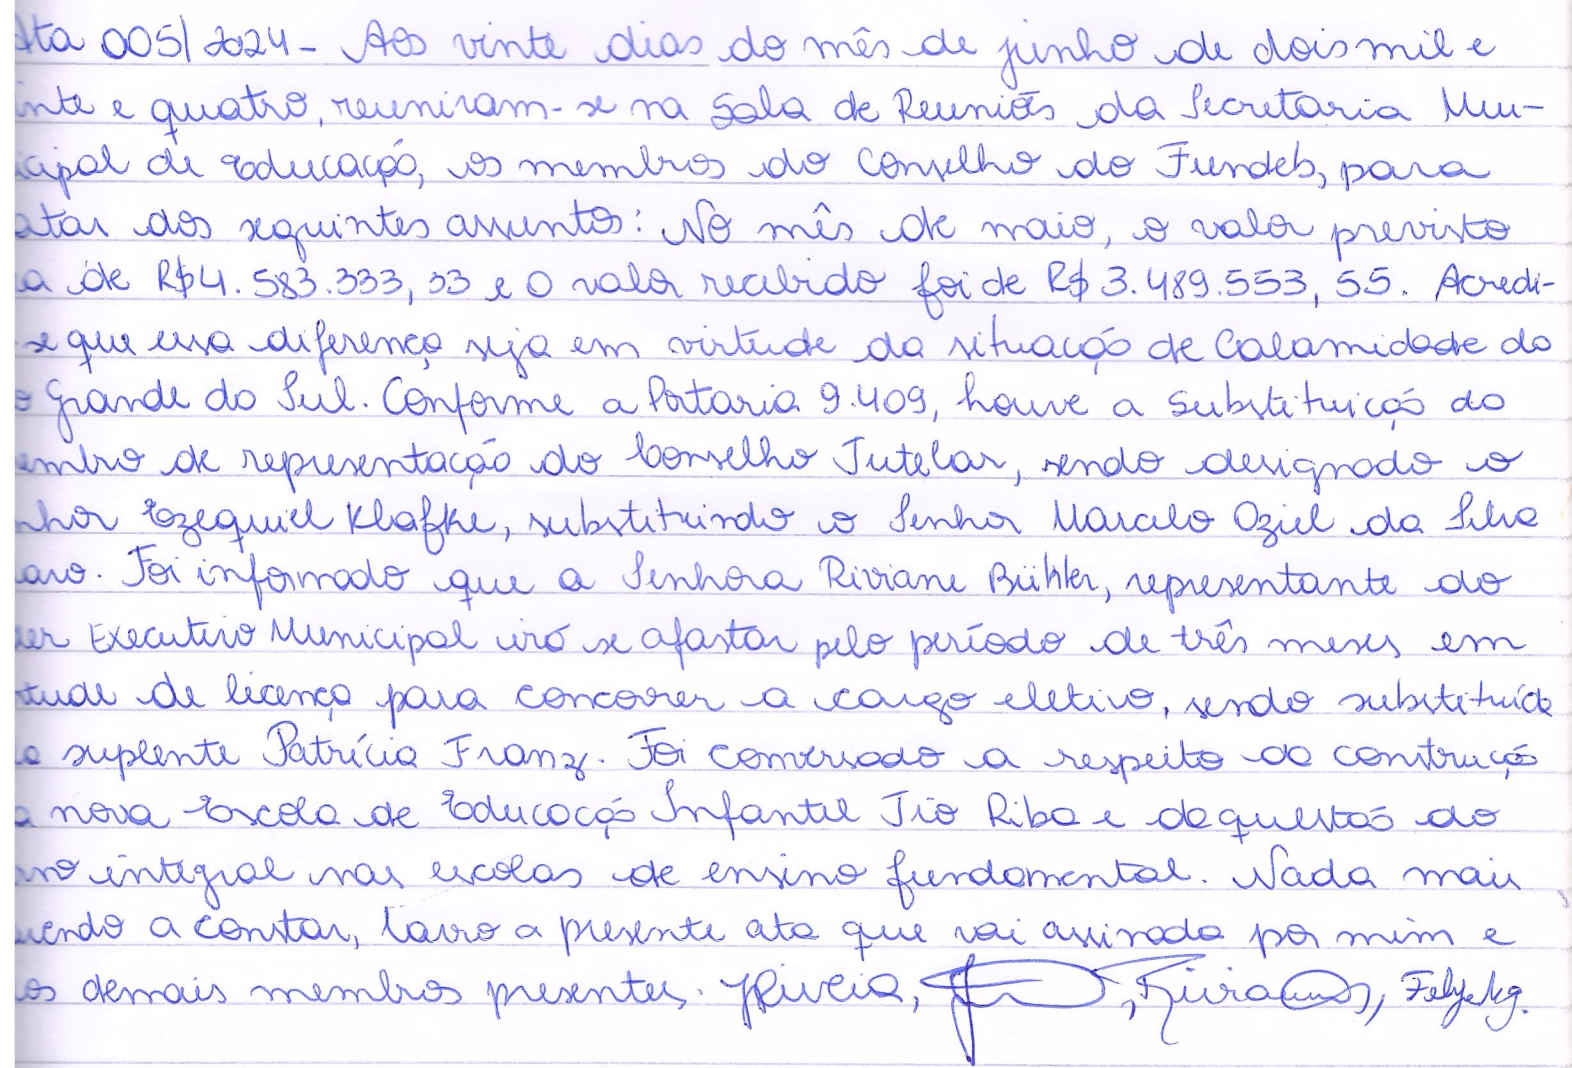 Ata 005/2024 - Aos vinte dias do mês de junho de dois mil e
inte e quatro, reuniram-se na Sala de Reuniões da Secretaria Mu-
icipal de Educação, os membros do Conselho do Fundeb, para
atar dos seguintes assuntos: No mês de maio, o valor previsto
a de R$4.583.333,33 e o valor recebido foi de R$ 3.489.553,55. Acredi-
se que essa diferença seja em virtude da situação de Calamidade do
o Grande do Sul. Conforme a Portaria 9.409, houve a substituição do
embro de representação do Conselho Tutelar, sendo designado o
nhor Ezequiel Klafke, substituindo o Senhor Marcelo Oziel da Silva
aro. Foi informado que a Senhora Riviane Bühler, representante do
der Executivo Municipal irá se afastar pelo período de três meses em
tude de licença para concorrer a cargo eletivo, sendo substituída
a suplente Patrícia Franz. Foi conversado a respeito da construção
a nova Escola de Educação Infantil Tio Riba e da questão do
no integral nas escolas de ensino fundamental. Nada mais
vendo a constar, lavro a presente ata que vai assinada por mim e
os demais membros presentes.